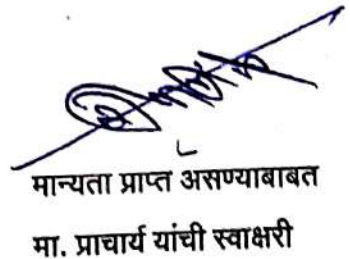 मान्यता प्राप्त असण्याबाबत
मा. प्राचार्य यांची स्वाक्षरी